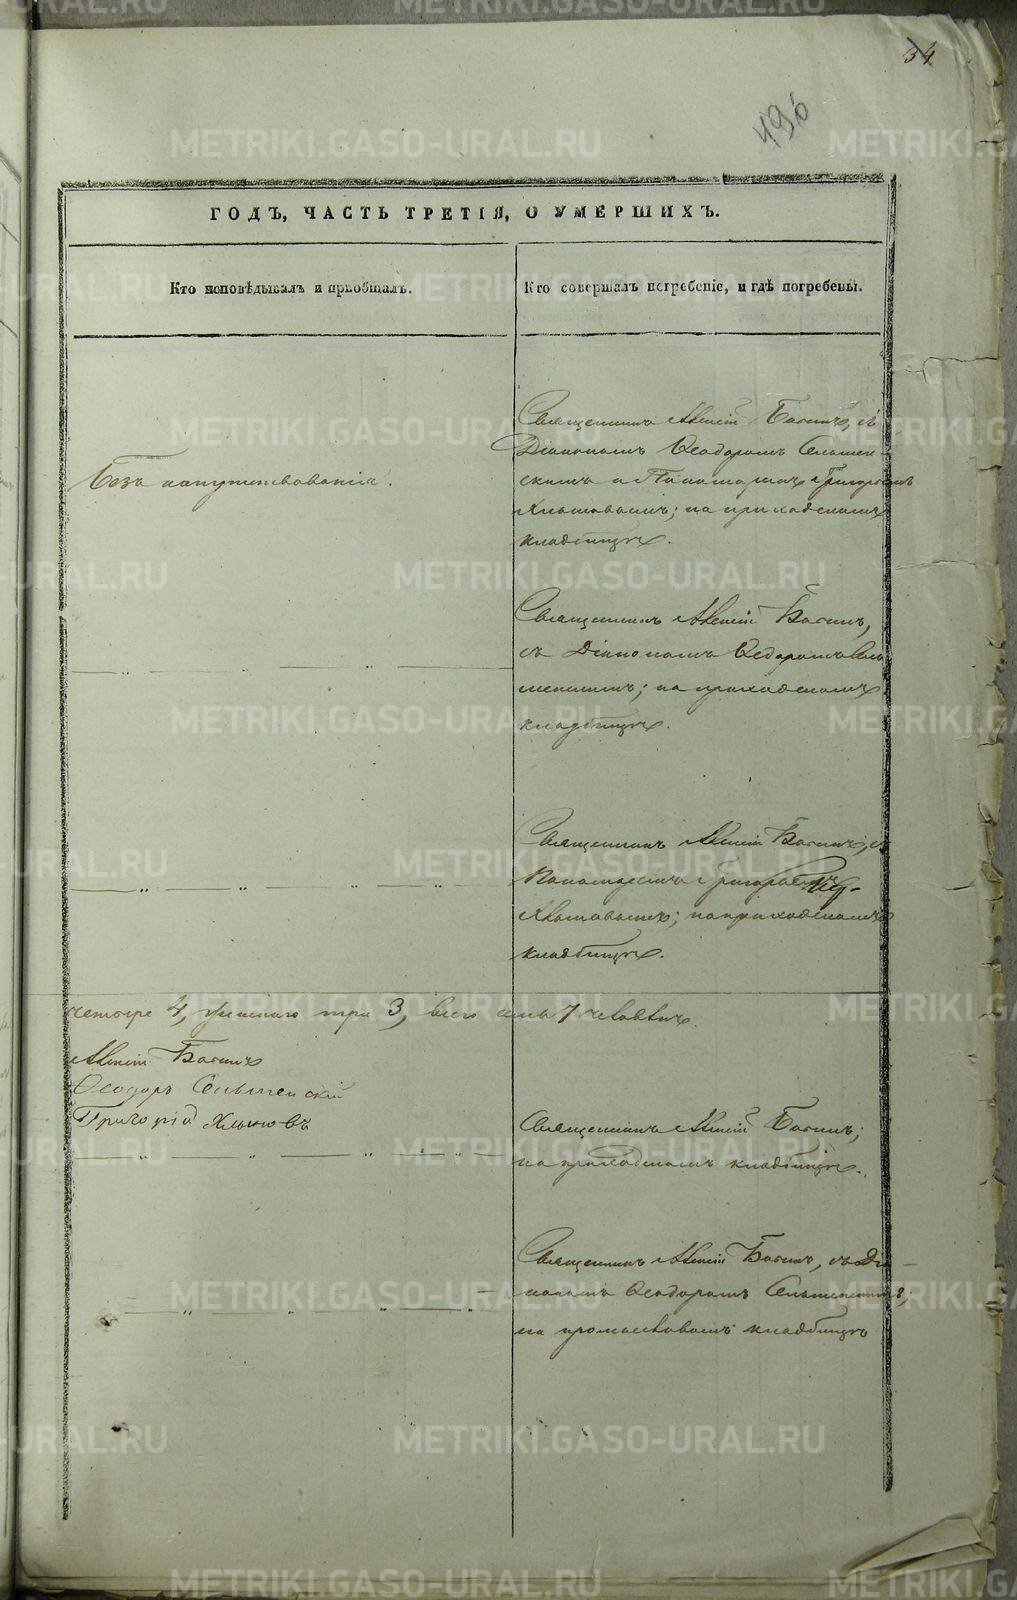 34
496
ГОДЪ, ЧАСТЬ ТРЕТІЯ, О УМЕРШИХЪ.
Кто исповѣдывалъ и пріобщалъ.
Кто совершалъ погребеніе, и гдѣ погребены.
Безъ напутствованія.
Священникъ Алексій Басинъ, съ
Діакономъ Ѳеодоромъ Сельмен-
скимъ и Пономаремъ Григоріемъ
Хлыновымъ; на приходскомъ
кладбищѣ.
Священникъ Алексій Басинъ,
съ Діакономъ Ѳедоромъ Сель
менскимъ; на приходскомъ
кладбищѣ.
Священникъ Алексій Басинъ, съ
Пономаремъ Григоріемъ
Хлыновымъ; на приходскомъ
кладбищѣ.
четыре 4, женскаго три 3, всего семь 7 человѣкъ.
Алексій Басинъ
Ѳеодоръ Сельменскій
Григорій Хлыновъ
Священникъ Алексій Басинъ;
на приходскомъ кладбищѣ.
Священникъ Алексій Басинъ, съ Діа-
кономъ Ѳеодоромъ Сельменскимъ;
на кладбищѣ
METRIKI.GASO-URAL.RU